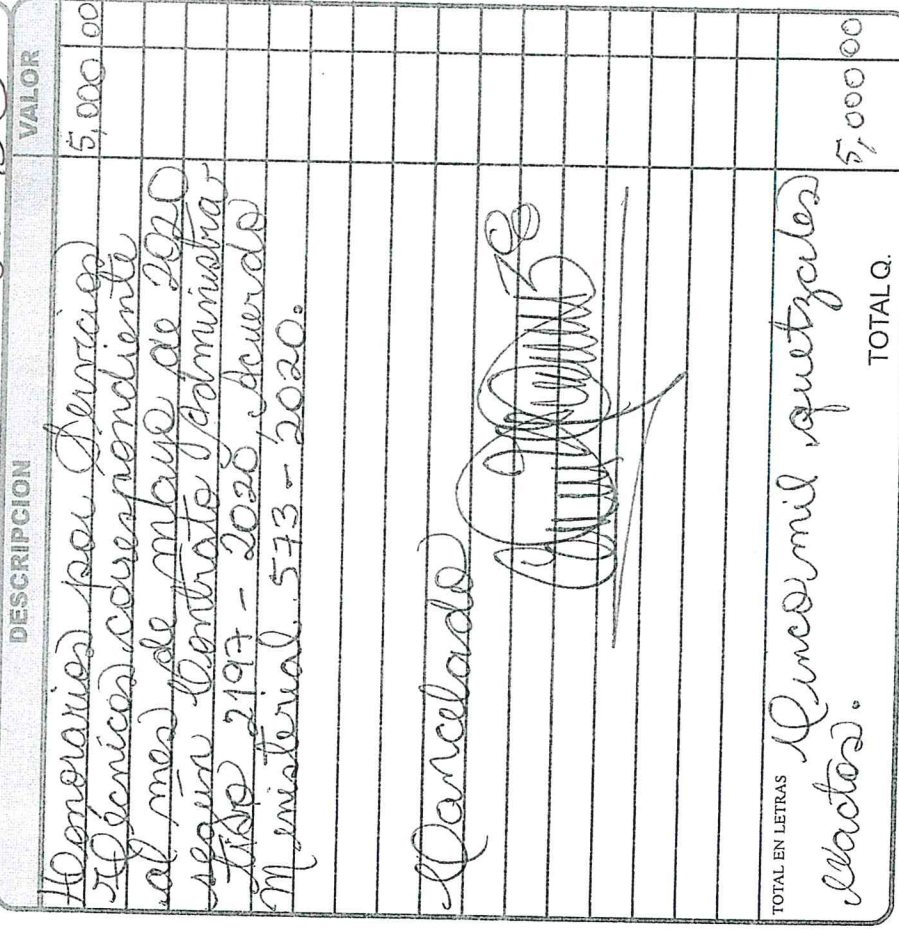 DESCRIPCION VALOR
Honorarios por Servicios 5,000 00
Técnicos correspondiente
al mes de mayo de 2020
según Contrato Administra-
tivo 2197 - 2020 Acuerdo
Ministerial 573 - 2020.
Cancelado
TOTAL EN LETRAS Cinco mil quetzales
exactos.
TOTAL Q. 5,000 00